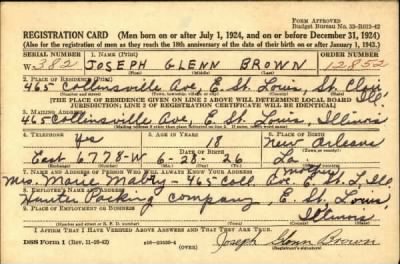 FORM APPROVED
Budget Bureau No. 33-R012-42
REGISTRATION CARD—(Men born on or after July 1, 1924, and on or before December 31, 1924)
(Also for the registration of men as they reach the 18th anniversary of the date of their birth on or after January 1, 1943.)
SERIAL NUMBER 1. NAME (Print) ORDER NUMBER
W 382 JOSEPH GLENN BROWN 12852
(First) (Middle) (Last)
2. PLACE OF RESIDENCE (Print)
465 Collinsville Ave, E. St. Louis, St. Clair Ill.
[THE PLACE OF RESIDENCE GIVEN ON LINE 2 ABOVE WILL DETERMINE LOCAL BOARD
JURISDICTION; LINE 2 OF REGISTRATION CERTIFICATE WILL BE IDENTICAL]
3. MAILING ADDRESS
465 Collinsville Ave, E. St. Louis, Illinois
4. TELEPHONE 5. AGE IN YEARS 6. PLACE OF BIRTH
Yes 18 New Orleans
East 6778-W 6-28-26 La.
7. NAME AND ADDRESS OF PERSON WHO WILL ALWAYS KNOW YOUR ADDRESS
mother
Mrs. Marie Mabry - 465 Coll. E. St. L. Ill.
8. EMPLOYER'S NAME AND ADDRESS
Hunter Packing Company, E. St. Louis,
9. PLACE OF EMPLOYMENT OR BUSINESS
Illinois
I AFFIRM THAT I HAVE VERIFIED ABOVE ANSWERS AND THAT THEY ARE TRUE.
DSS Form 1 (Rev. 11-16-42)
(OVER)
Joseph Glenn Brown